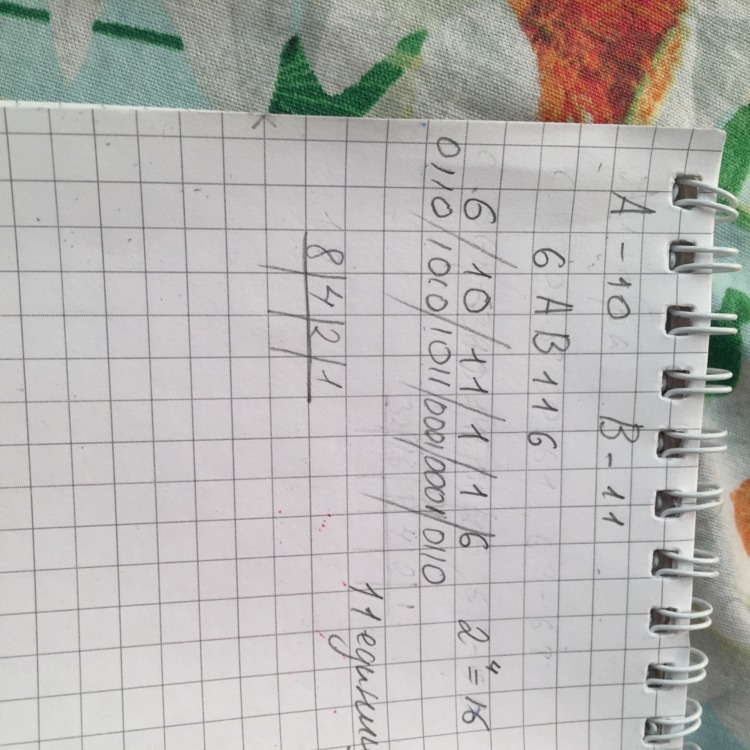 A - 10 B - 11
6 A B 1 1 6
6 / 10 / 11 / 1 / 1 / 6 2⁴ = 16
0110/1010/1011/0001/0001/0110
11 единиц
8/4/2/1